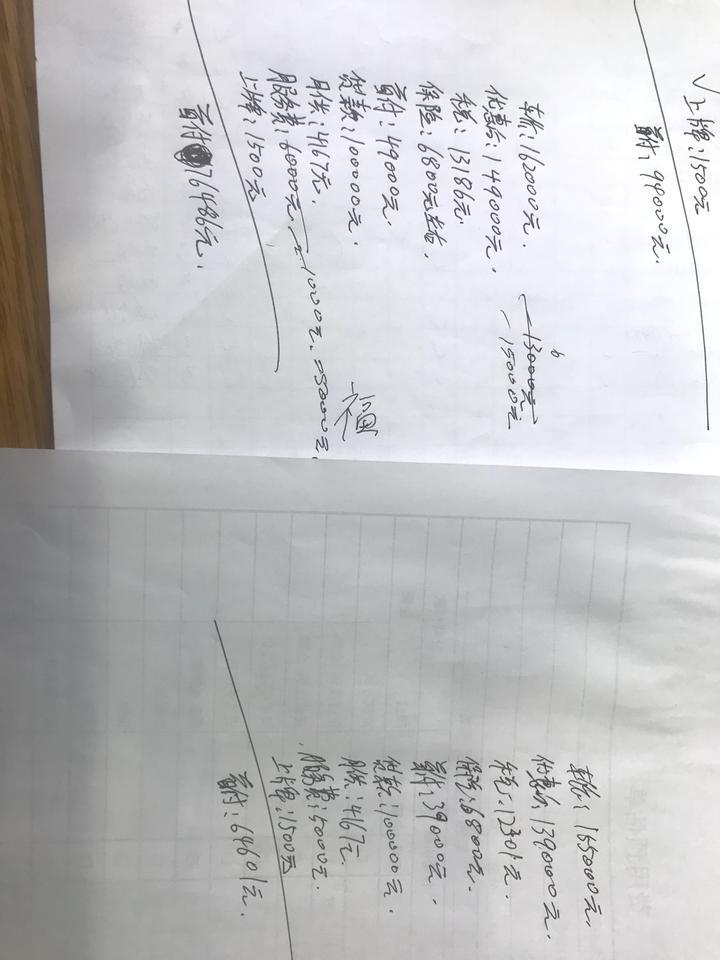 √上牌:1500元
车价:162000元.
优惠价:149000元. -13000元
-15000元
税:13186元.
保险:6800元左右.
首付:49000元.
贷款:100000元.
月供:4167元.
服务费:6000元 -1000元.=5000元.
上牌:1500元
首付 76486元.
车价:165000元.
优惠价:139000元.
税:12301元.
保险:6800元.
首付:39000元.
贷款:100000元.
月供:4167元.
服务费:5000元.
上牌:1500元
首付:64601元.